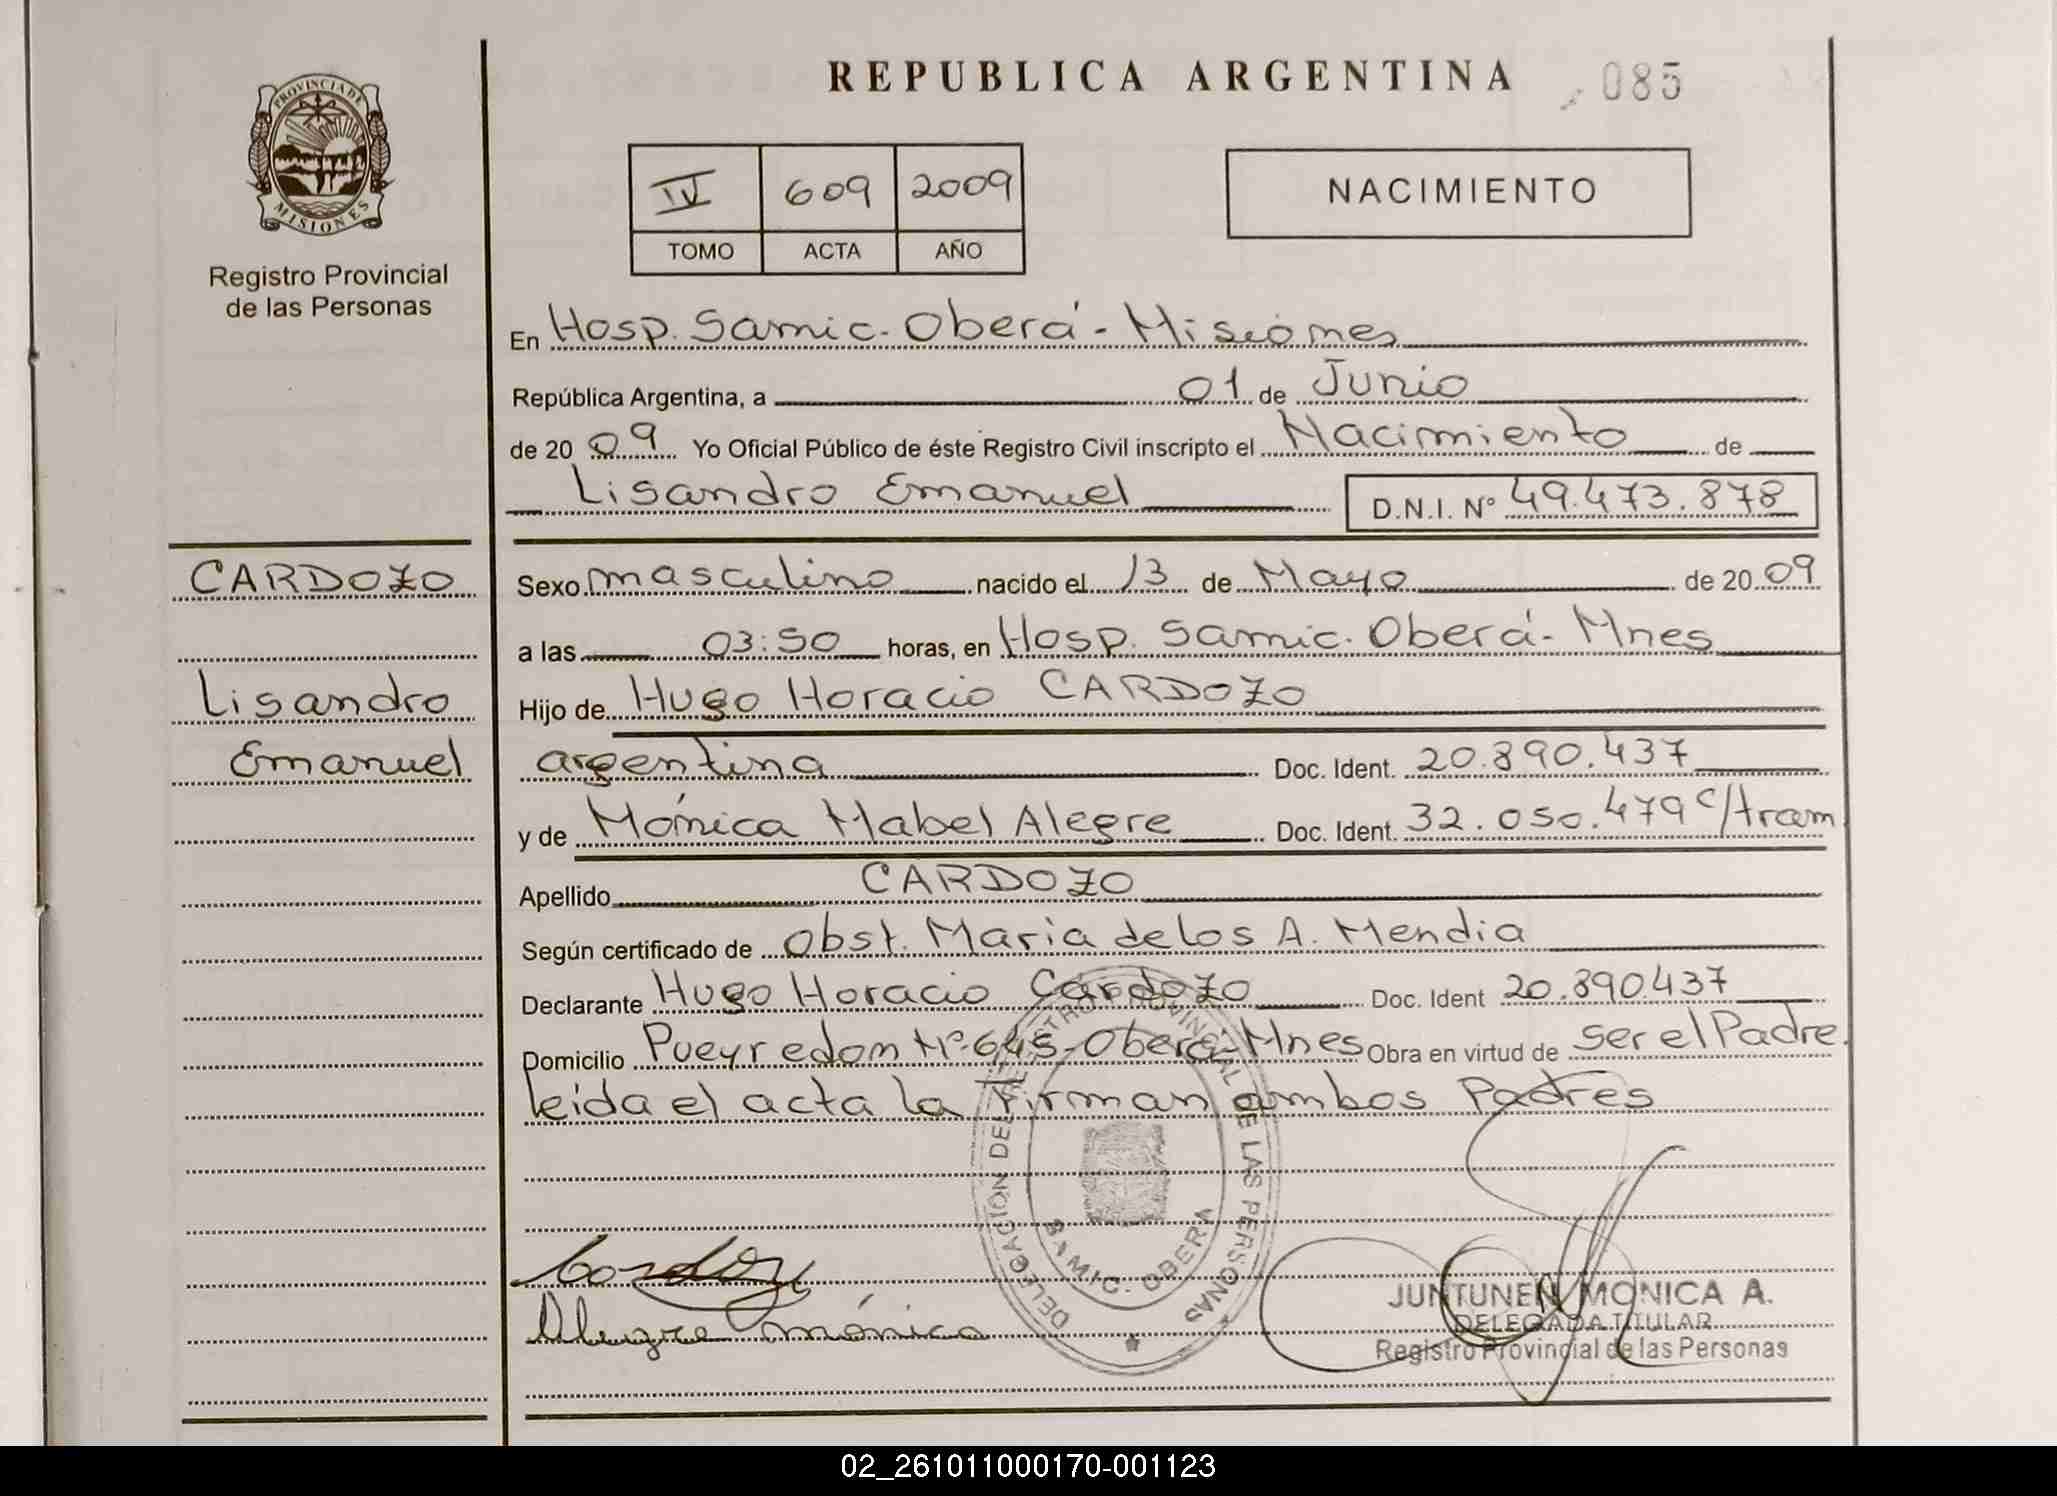 REPUBLICA ARGENTINA 085
PROVINCIA DE
MISIONES
Registro Provincial
de las Personas
IV 609 2009
TOMO ACTA AÑO
NACIMIENTO
En Hosp. Samic. Oberá - Misiones
República Argentina, a 01 de Junio
de 20 09 Yo Oficial Público de éste Registro Civil inscripto el Nacimiento de
Lisandro Emanuel D.N.I. Nº 49.473.878
CARDOZO
Lisandro
Emanuel
Sexo masculino nacido el 13 de Mayo de 20 09
a las 03:50 horas, en Hosp. Samic. Oberá - Mnes
Hijo de Hugo Horacio CARDOZO
argentina Doc. Ident. 20.890.437
y de Mónica Mabel Alegre Doc. Ident. 32.050.479 c/tram
Apellido CARDOZO
Según certificado de Obst. Maria de los A. Mendia
Declarante Hugo Horacio Cardozo Doc. Ident 20.890437
Domicilio Pueyrredon Nº 645 - Oberá - Mnes Obra en virtud de ser el Padre.
leida el acta la firman ambos Padres
DELEGACIÓN DEL REGISTRO PROVINCIAL DE LAS PERSONAS
SAMIC. OBERA
Cardozo
Alegre mónica
JUNTUNEN MONICA A.
DELEGADA TITULAR
Registro Provincial de las Personas
02_261011000170-001123